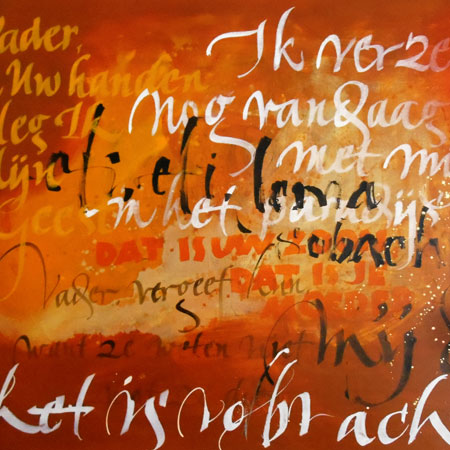 Vader,
Uw handen
leg Ik
Mijn
Geest
Ik verze
Nog vandaag
met m
in het paradijs
eli, eli, lema
sabach
DAT IS UW ZOON
DAT IS JE
MOEDER
Vader, vergeef hun
want ze weten niet
Mij
het is volbrach